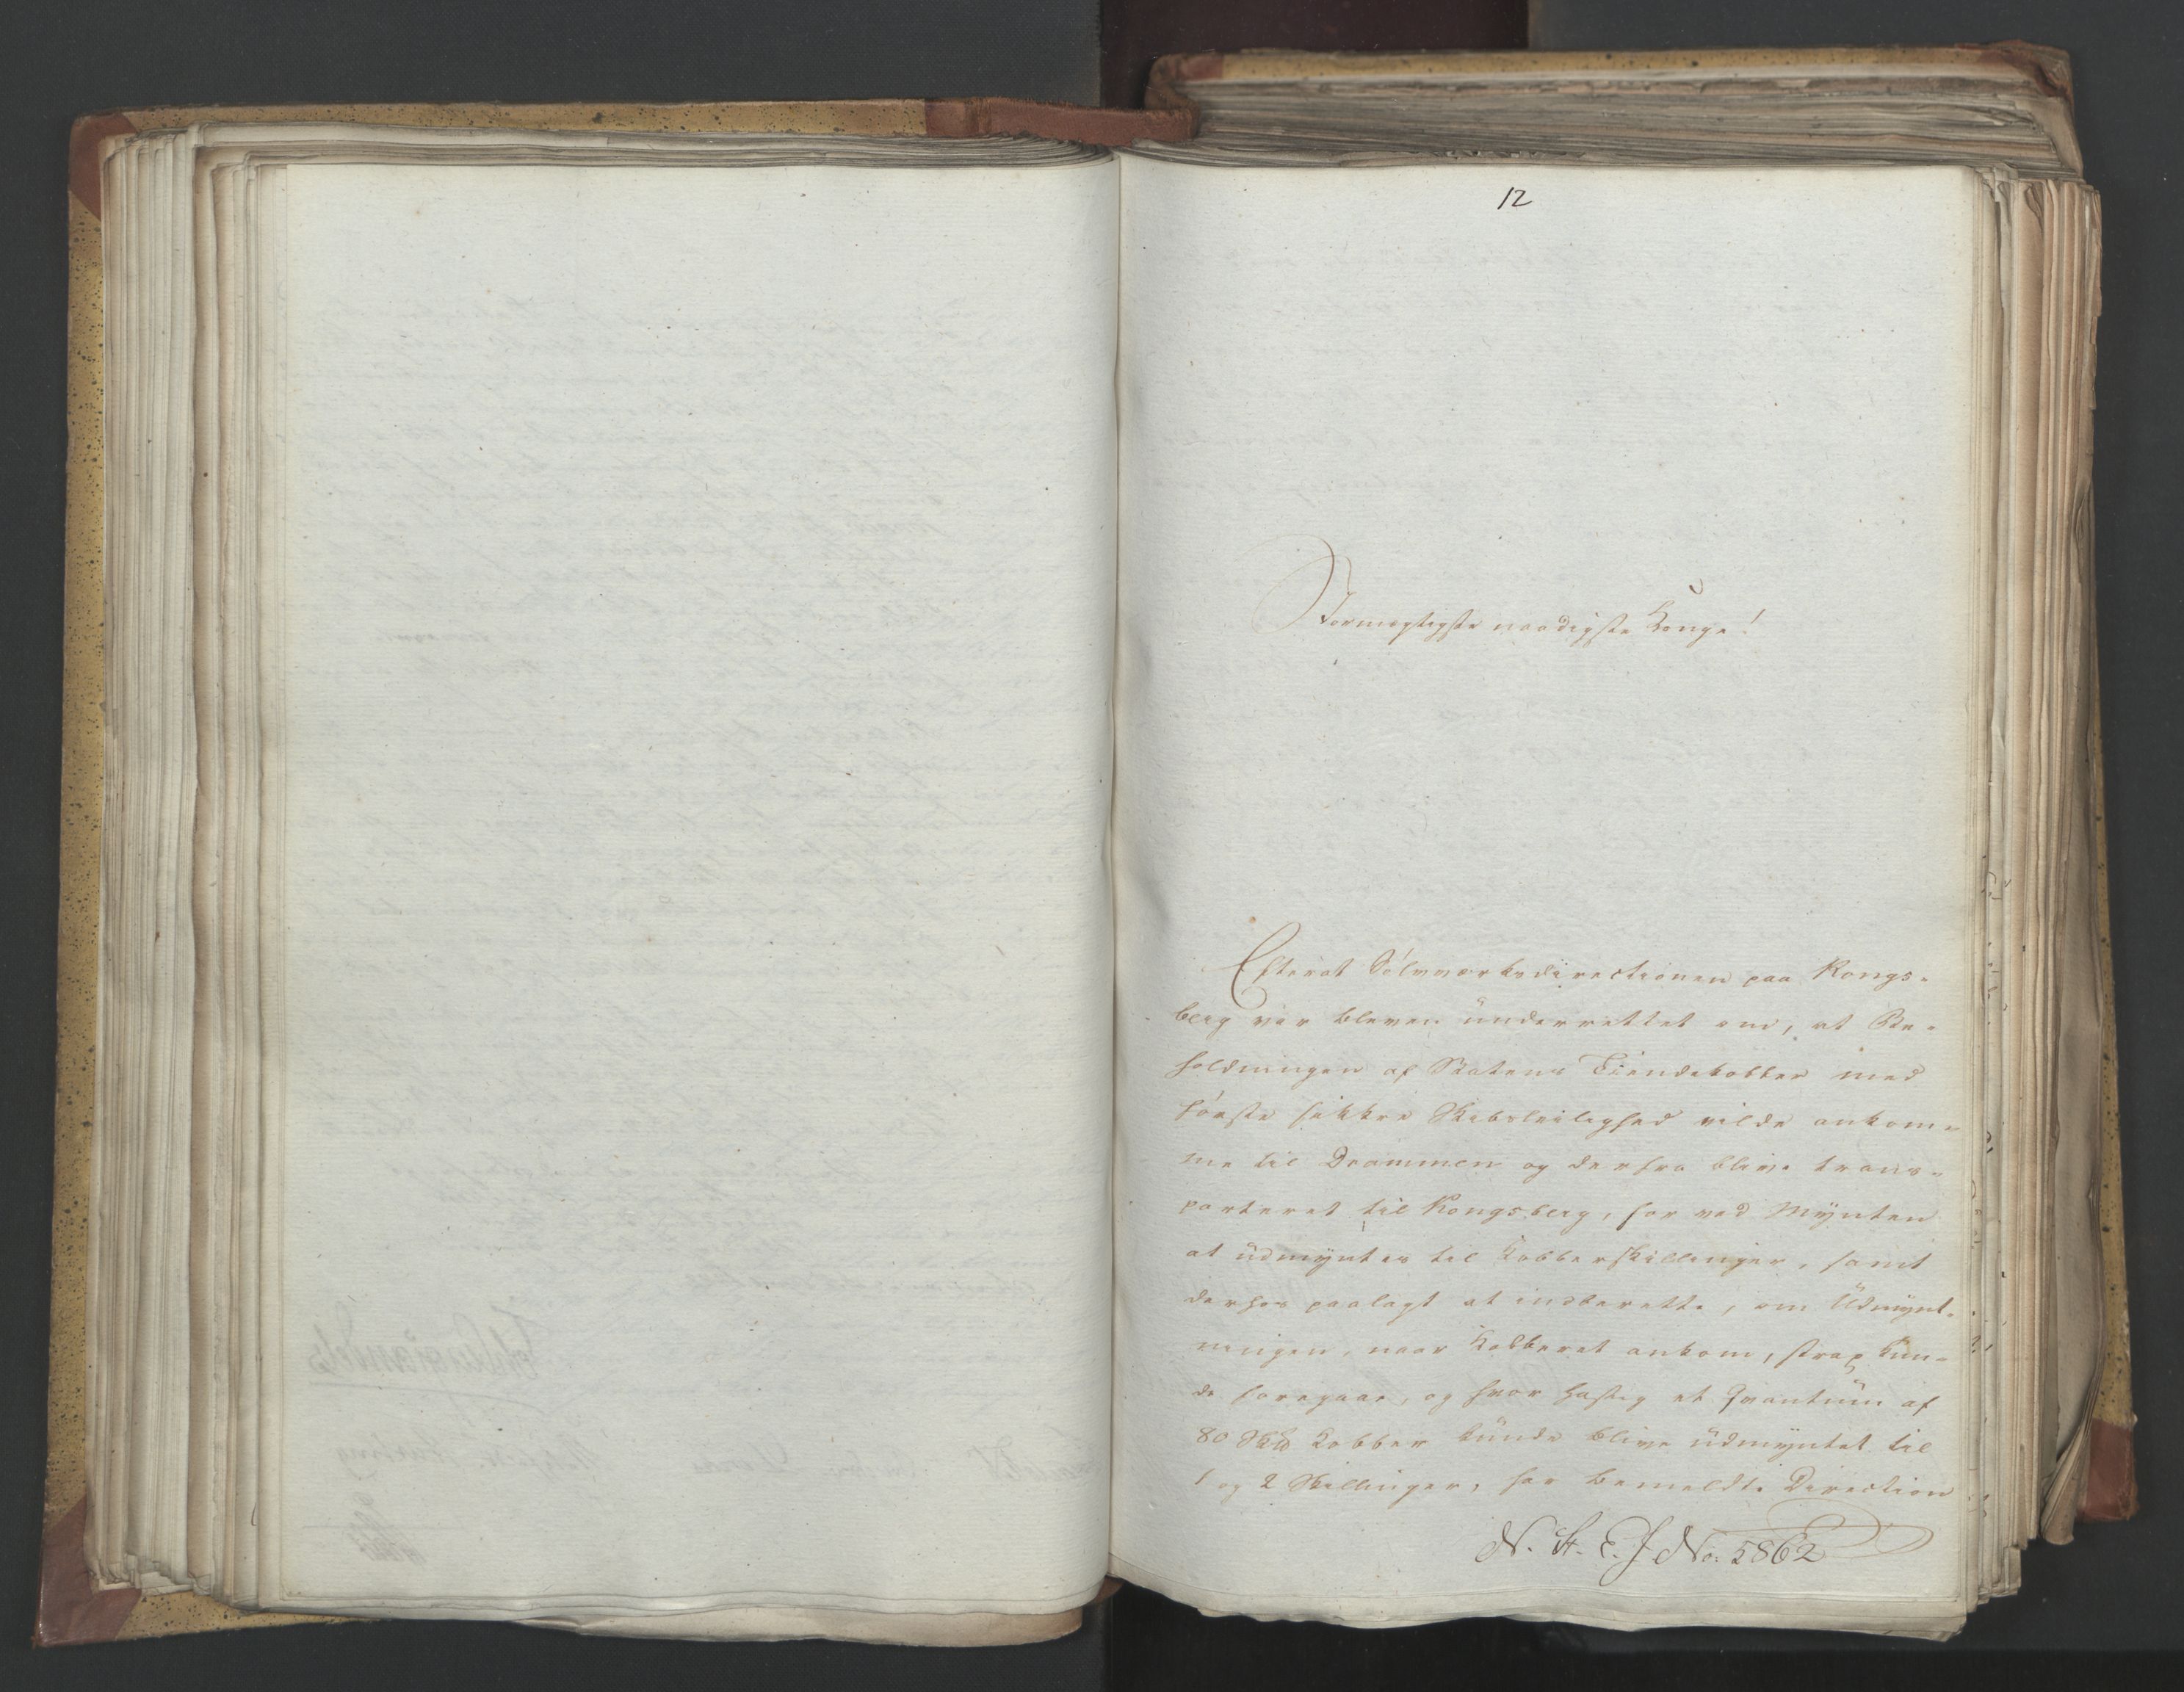 12
Stormægtigste naadigste Konge!
Efterat Sølvværksdirectionen paa Kongs-
berg var bleven underrettet om, at Be-
holdningen af Statens Tiendekobber med
første sikkre Skibsleilighed vilde ankom-
me til Drammen og derfra blive trans-
porteret til Kongsberg, for ved Mynten
at udmyntes til Kobberskillinger, samt
derhos paalagt at indberette, om Udmynt-
ningen, naar Kobberet ankom, strax kun-
de foregaae, og hvor hastig et Qvantum af
80 Sk℔ Kobber kunde blive udmyntet til
1 og 2 Skillinger, har bemeldte Direction
N. St. E. J No. 5862